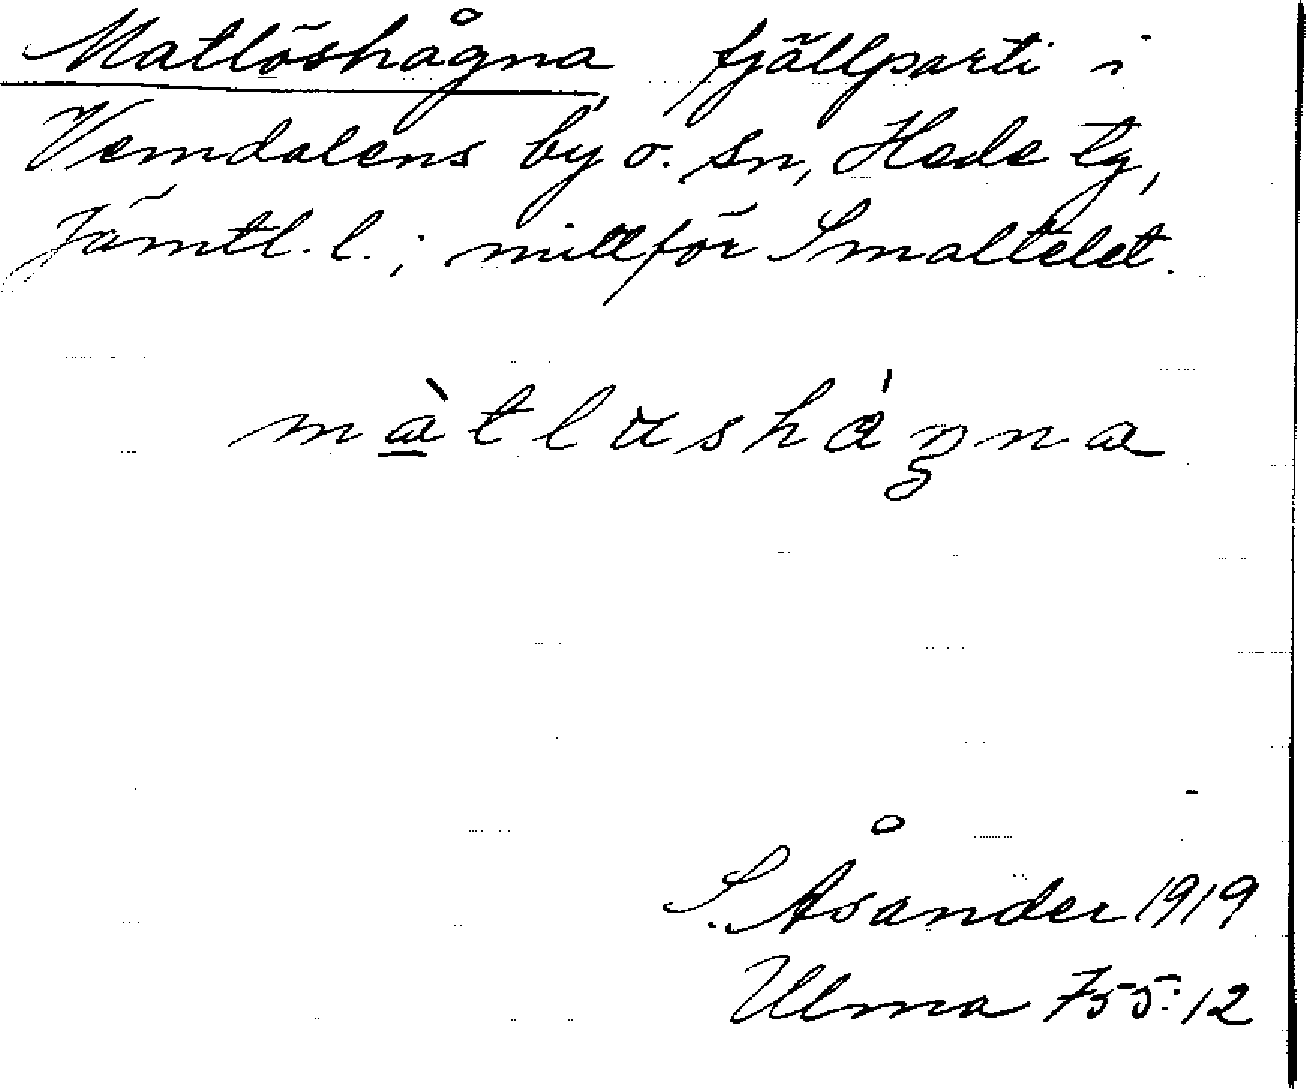 Matlöshågna fjällparti i
Vemdalens by o. sn, Hede tg,
Jämtl. l.; mittför Smaltelet.
S. Åsander 1919
Ulma 755:12